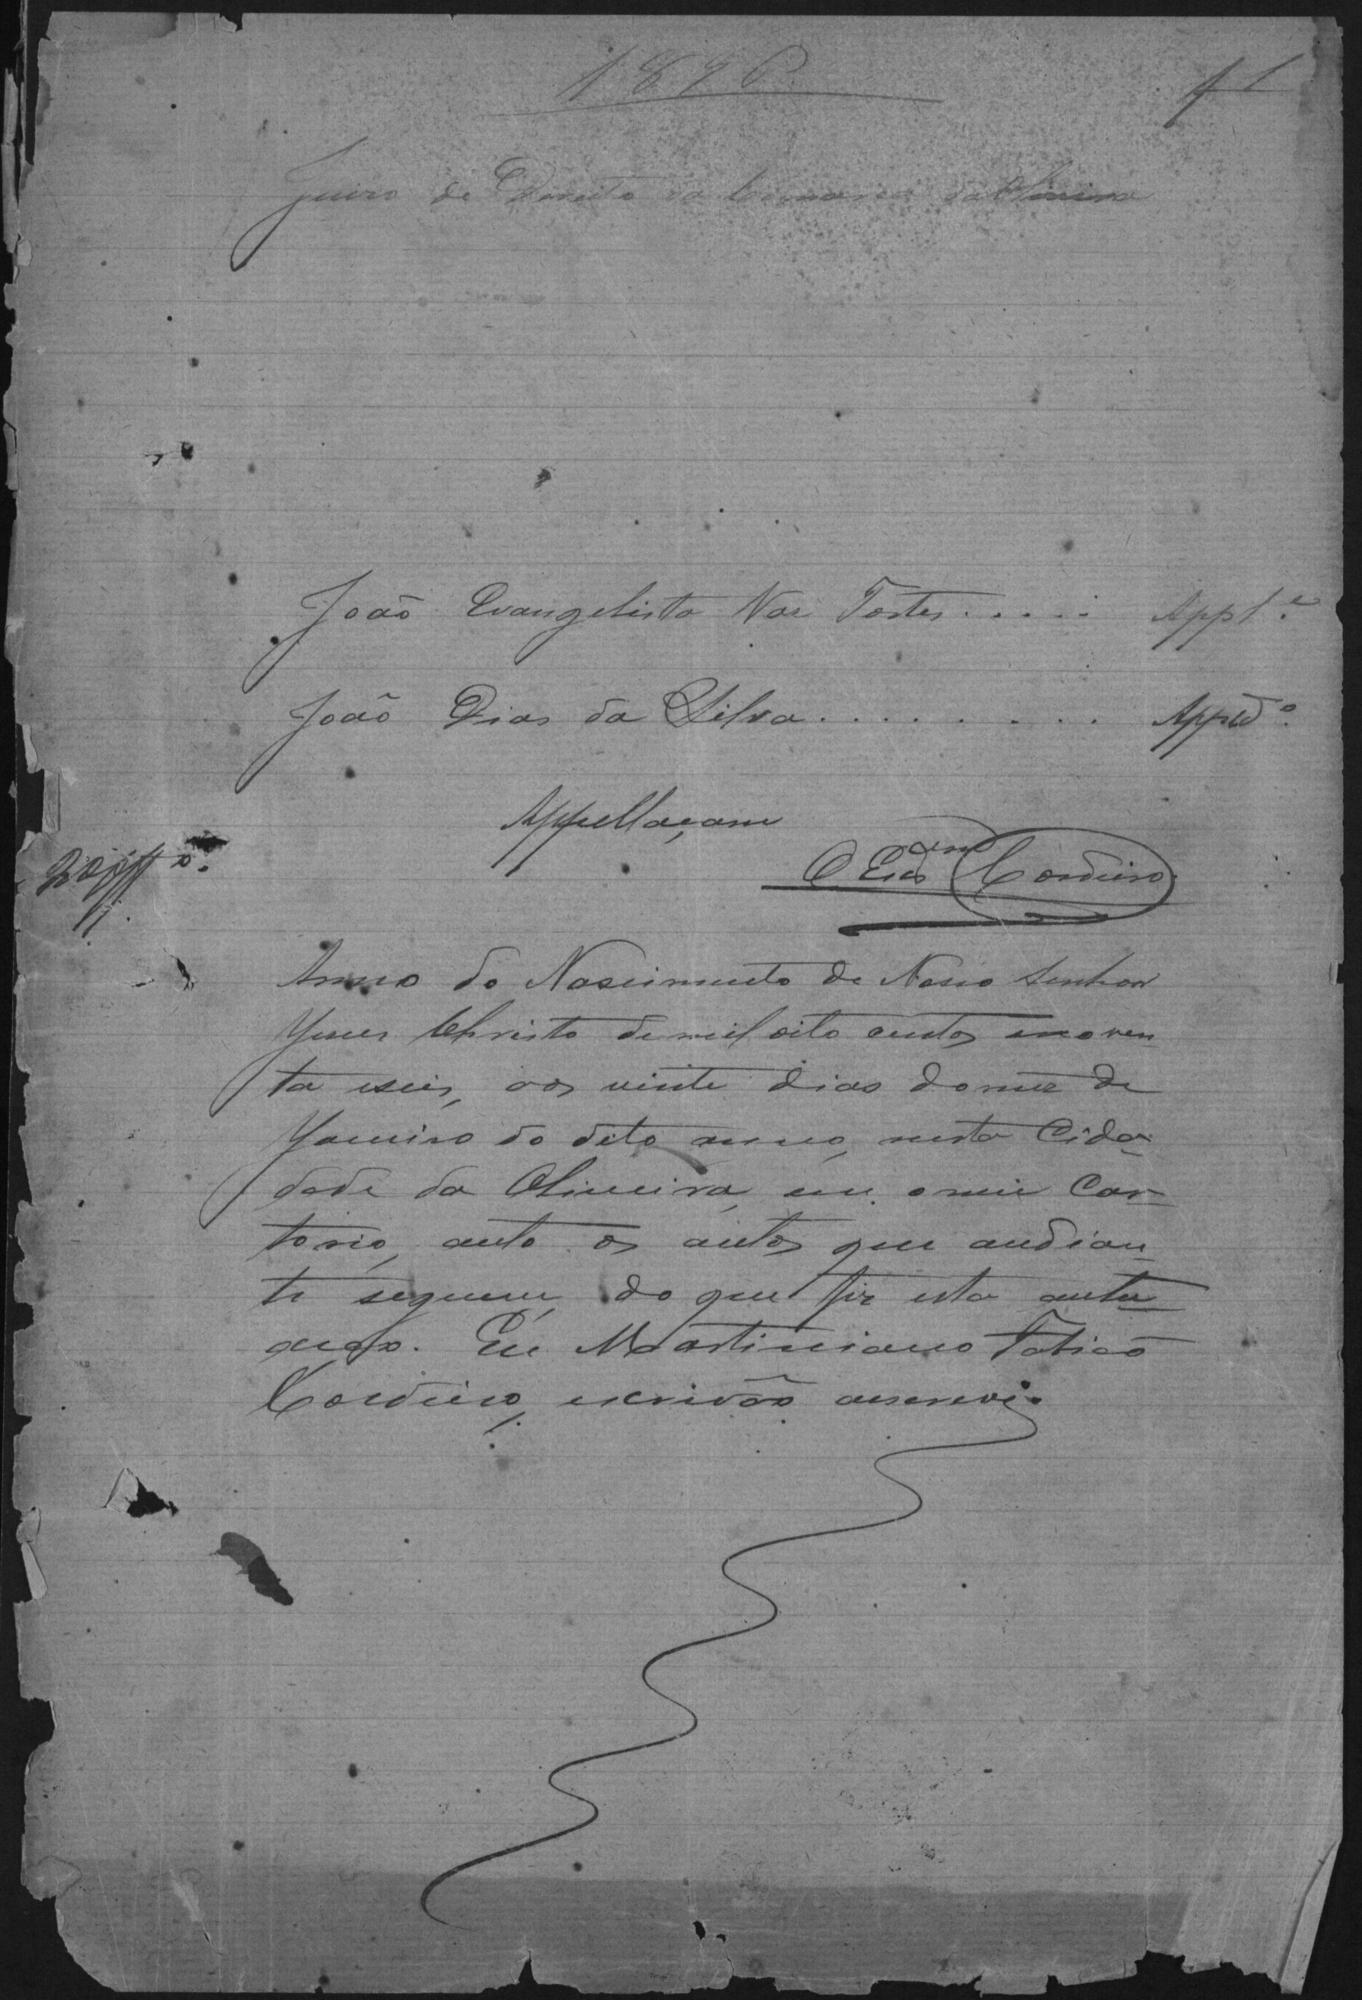 1896
f 1
Juizo de Direito da Comarca da Oliveira
João Evangelista Vaz Tostes..... Appl.e
João Dias da Silva......... Appd.o
Appellaçam
O Escrivam Cordeiro
Anno do Nascimento de Nosso Senhor
Yesus Christo de mil oito centos e noven
ta e seis, aos vinte dias do mez de
Yaneiro do dito anno, nesta Cida-
dade da Oliveira, em o meu Car-
torio, auto os autos que andian-
te seguem, do que fiz esta autu
acão. Eu Martiniano
Cordeiro, escrivão escrevi.